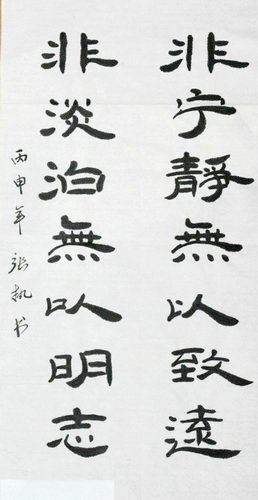 非宁靜無以致遠
非淡泊無以明志
丙申年 張執书